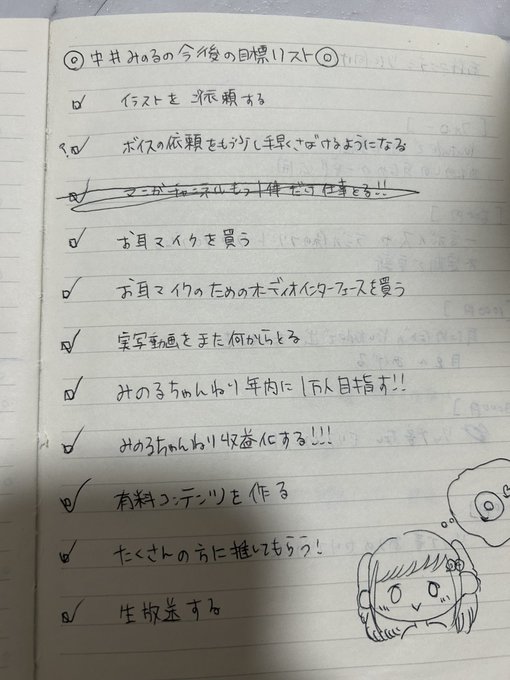 ◎中井みのるの今後の目標リスト◎
イラストをご依頼する
?ボイスの依頼をもう少し手早くさばけるようになる
マンガチャンネルもう1件だけ仕事とる!!
お耳マイクを買う
お耳マイクのためのオーディオインターフェースを買う
実写動画をまた何かしらとる
みのるちゃんねり年内に1万人目指す!!
みのるちゃんねり収益化する!!!
有料コンテンツを作る
たくさんの方に推してもらう!
生放送する